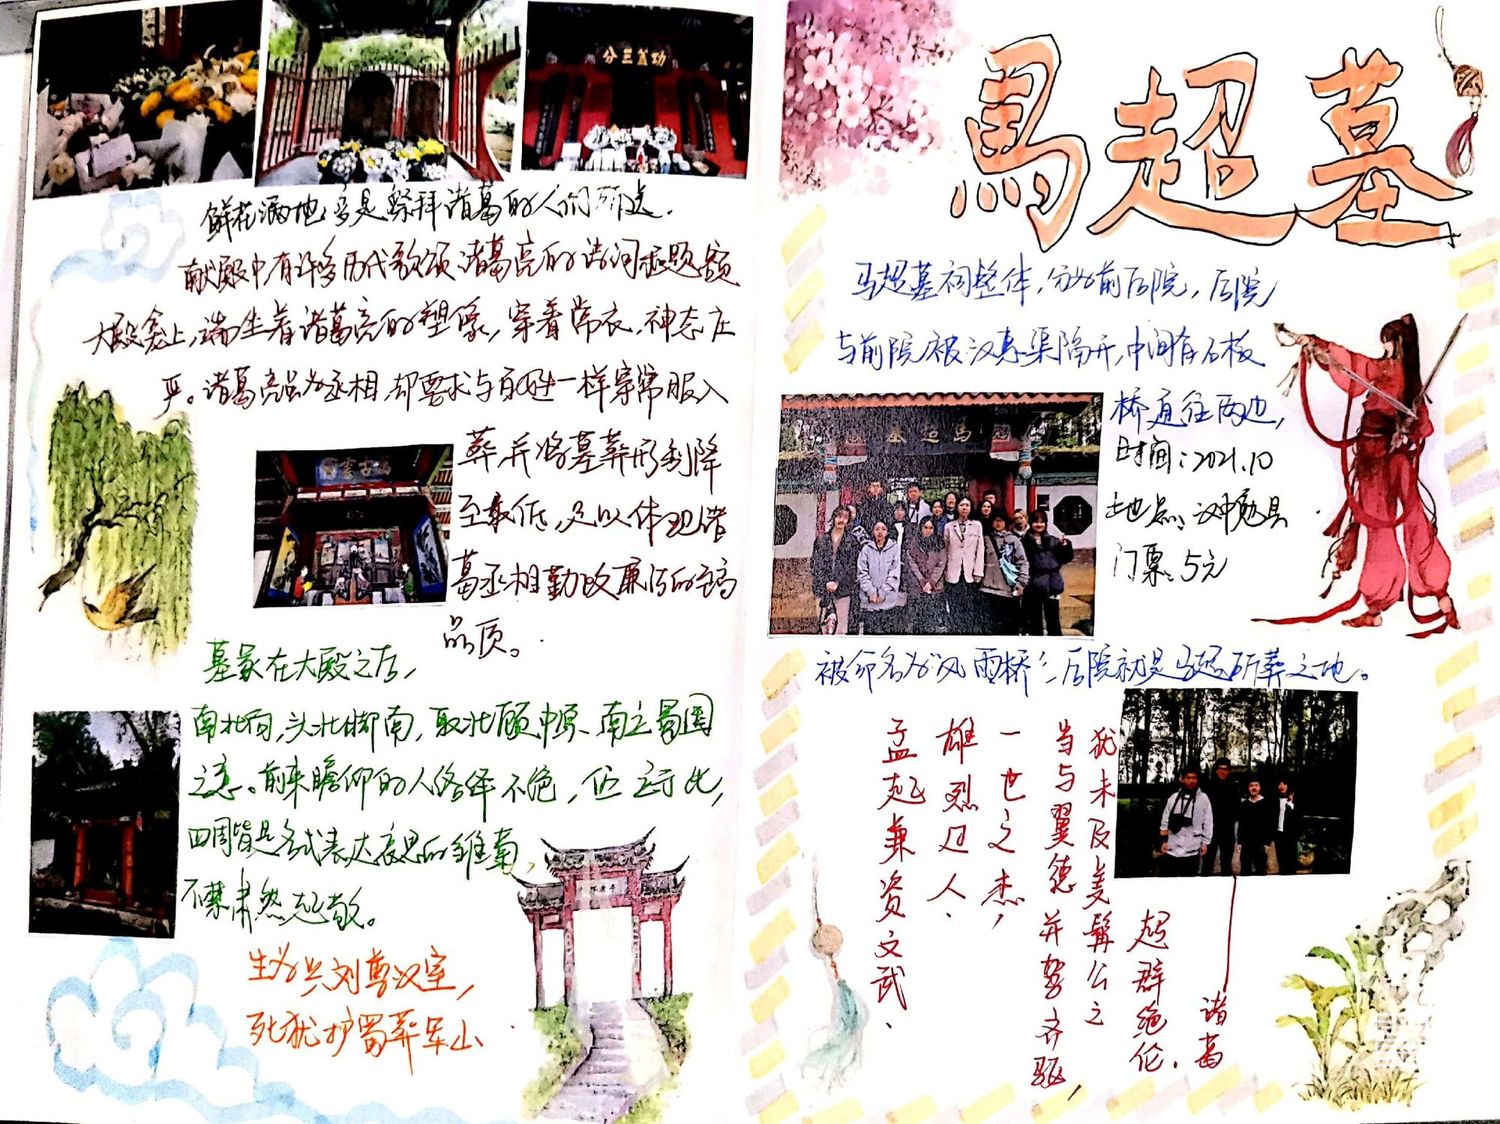 功盖三分
鲜花满地,多是祭拜诸葛的人们所送.
献殿中有许多历代歌颂诸葛亮的诗词和题额
大殿龛上,端坐着诸葛亮的塑像,穿着常衣,神态庄
严。诸葛亮虽为丞相,却要求与百姓一样穿常服入
葬,并将墓葬形制降
至最低,足以体现诸
葛丞相勤政廉洁的高
品质。
墓冢在大殿之后,
南北向,头北脚南,取北愿中原、南立蜀国
之意。前来瞻仰的人络绎不绝,伫立于此,
四周皆是各式表达哀思的雏菊,
不禁肃然起敬。
生为兴刘尊汉室,
死犹护蜀葬军山
马超墓
马超墓祠整体,分为前后院,后院
与前院被汉惠渠隔开,中间有石板
桥通往两边,
时间:2021.10
地点:汉中勉县
门票:5元
被命名为"风雨桥";后院就是马超所葬之地。
孟起兼资文武、
雄烈过人、
一世之杰,
当与翼德并驾齐驱,
犹未及美髯公之
超群绝伦.
诸葛